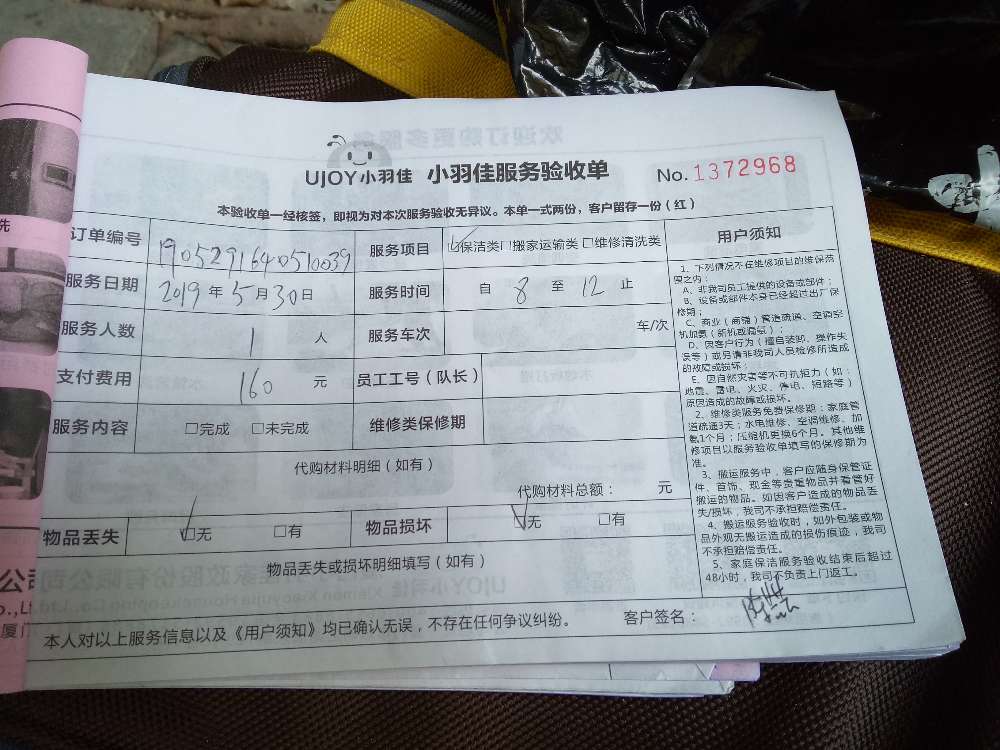 UJOY小羽佳 小羽佳服务验收单 No.1372968
本验收单一经核签，即视为对本次服务验收无异议。本单一式两份，客户留存一份（红）
订单编号 1905291640510039 服务项目 ☑保洁类 □搬家运输类 □维修清洗类
服务日期 2019 年 5 月 30 日 服务时间 自 8 至 12 止
服务人数 1 人 服务车次 车/次
支付费用 160 元 员工工号（队长）
服务内容 □完成 □未完成 维修类保修期
代购材料明细（如有）
代购材料总额： 元
物品丢失 ☑无 □有 物品损坏 ☑无 □有
物品丢失或损坏明细填写（如有）
本人对以上服务信息以及《用户须知》均已确认无误，不存在任何争议纠纷。 客户签名：
用户须知
1、下列情况不在维修项目的维保范
围之内：
A、非我司员工提供的设备或部件；
B、设备或部件本身已经超过出厂保
修期；
C、商业（商铺）管道疏通、空调整
机加氨（新机或漏氨）；
D、因客户行为（擅自装卸、操作失
误等）或另请非我司人员检修所造成
的故障或损坏；
E、因自然灾害等不可抗拒力（如：
地震、雷电、火灾、停电、短路等）
原因造成的故障或损坏。
2、维修类服务免费保修期：家庭管
道疏通3天；水电维修、空调维修、加
氨1个月；压缩机更换6个月。其他维
修项目以服务验收单填写的保修期为
准。
3、搬运服务中，客户应随身保管证
件、首饰、现金等贵重物品并看管好
搬运的物品。如因客户造成的物品丢
失/损坏，我司不承担赔偿责任。
4、搬运服务验收时，如外包装或物
品外观无搬运造成的损伤痕迹，我司
不承担赔偿责任。
5、家庭保洁服务验收结束后超过
48小时，我司不负责上门返工。